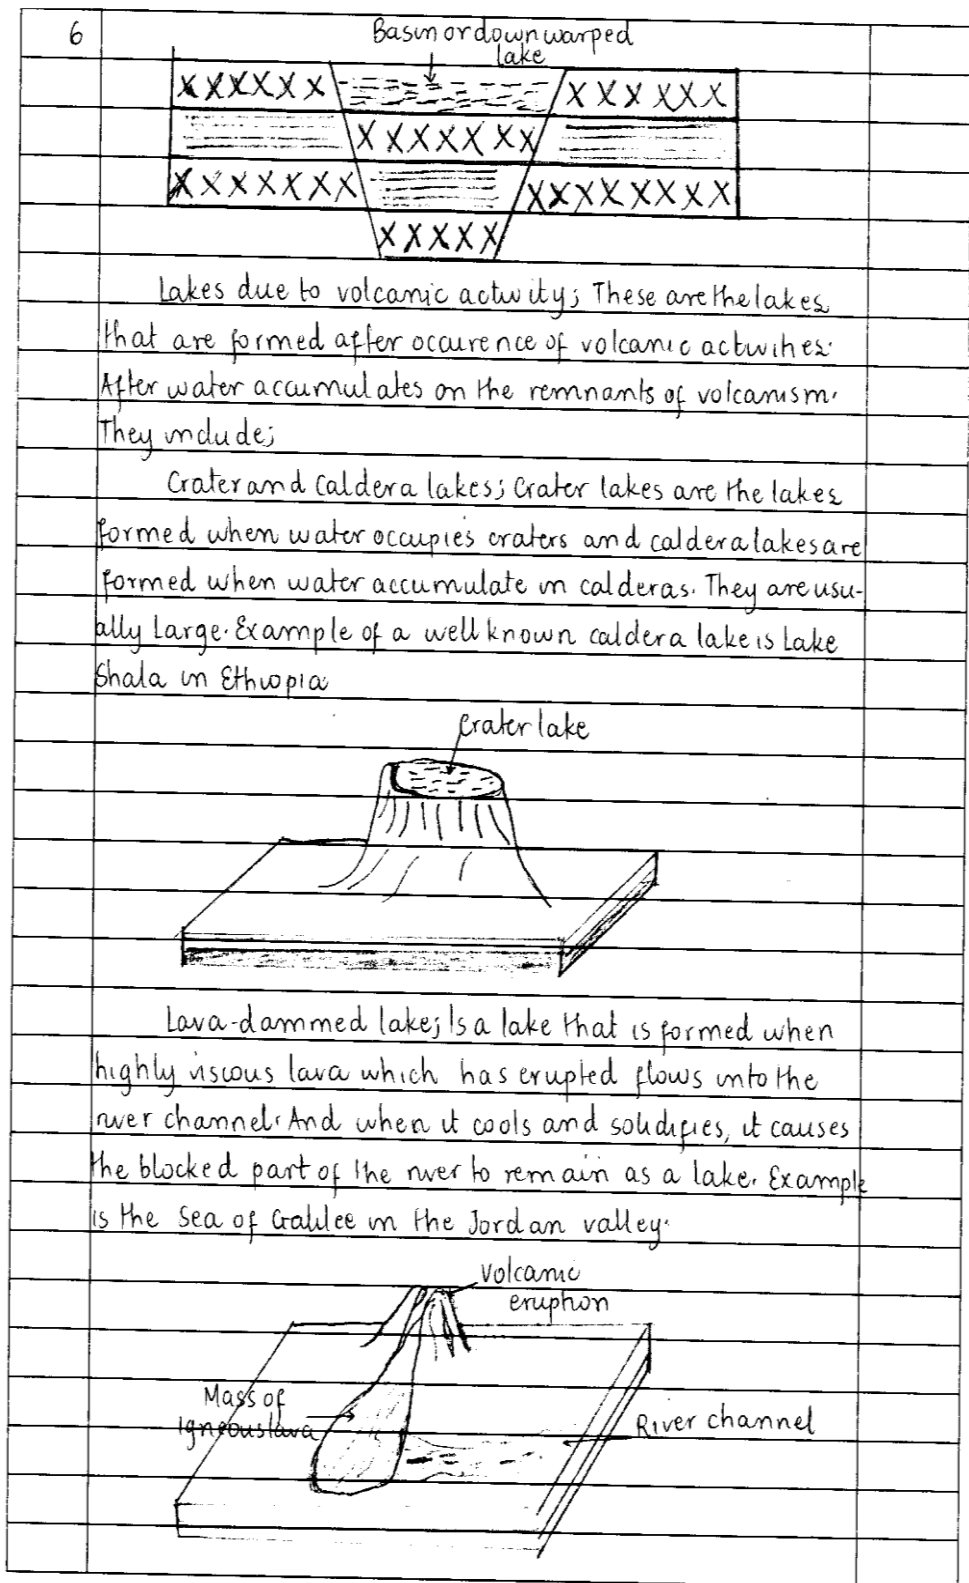 6
Basin or down warped
lake
Lakes due to volcanic activity; These are the lakes
that are formed after occurence of volcanic activities.
After water accumulates on the remnants of volcanism.
They include;
Crater and Caldera lakes; Crater lakes are the lakes
formed when water occupies craters and caldera lakes are
formed when water accumulate in calderas. They are usu-
ally Large. Example of a well known caldera lake is Lake
Shala in Ethiopia
Crater lake
Lava-dammed lake; Is a lake that is formed when
highly viscous lava which has erupted flows into the
river channel. And when it cools and solidifies, it causes
the blocked part of the river to remain as a lake. Example
is the Sea of Galilee in the Jordan valley.
Volcanic
eruption
Mass of
Igneous lava
River channel